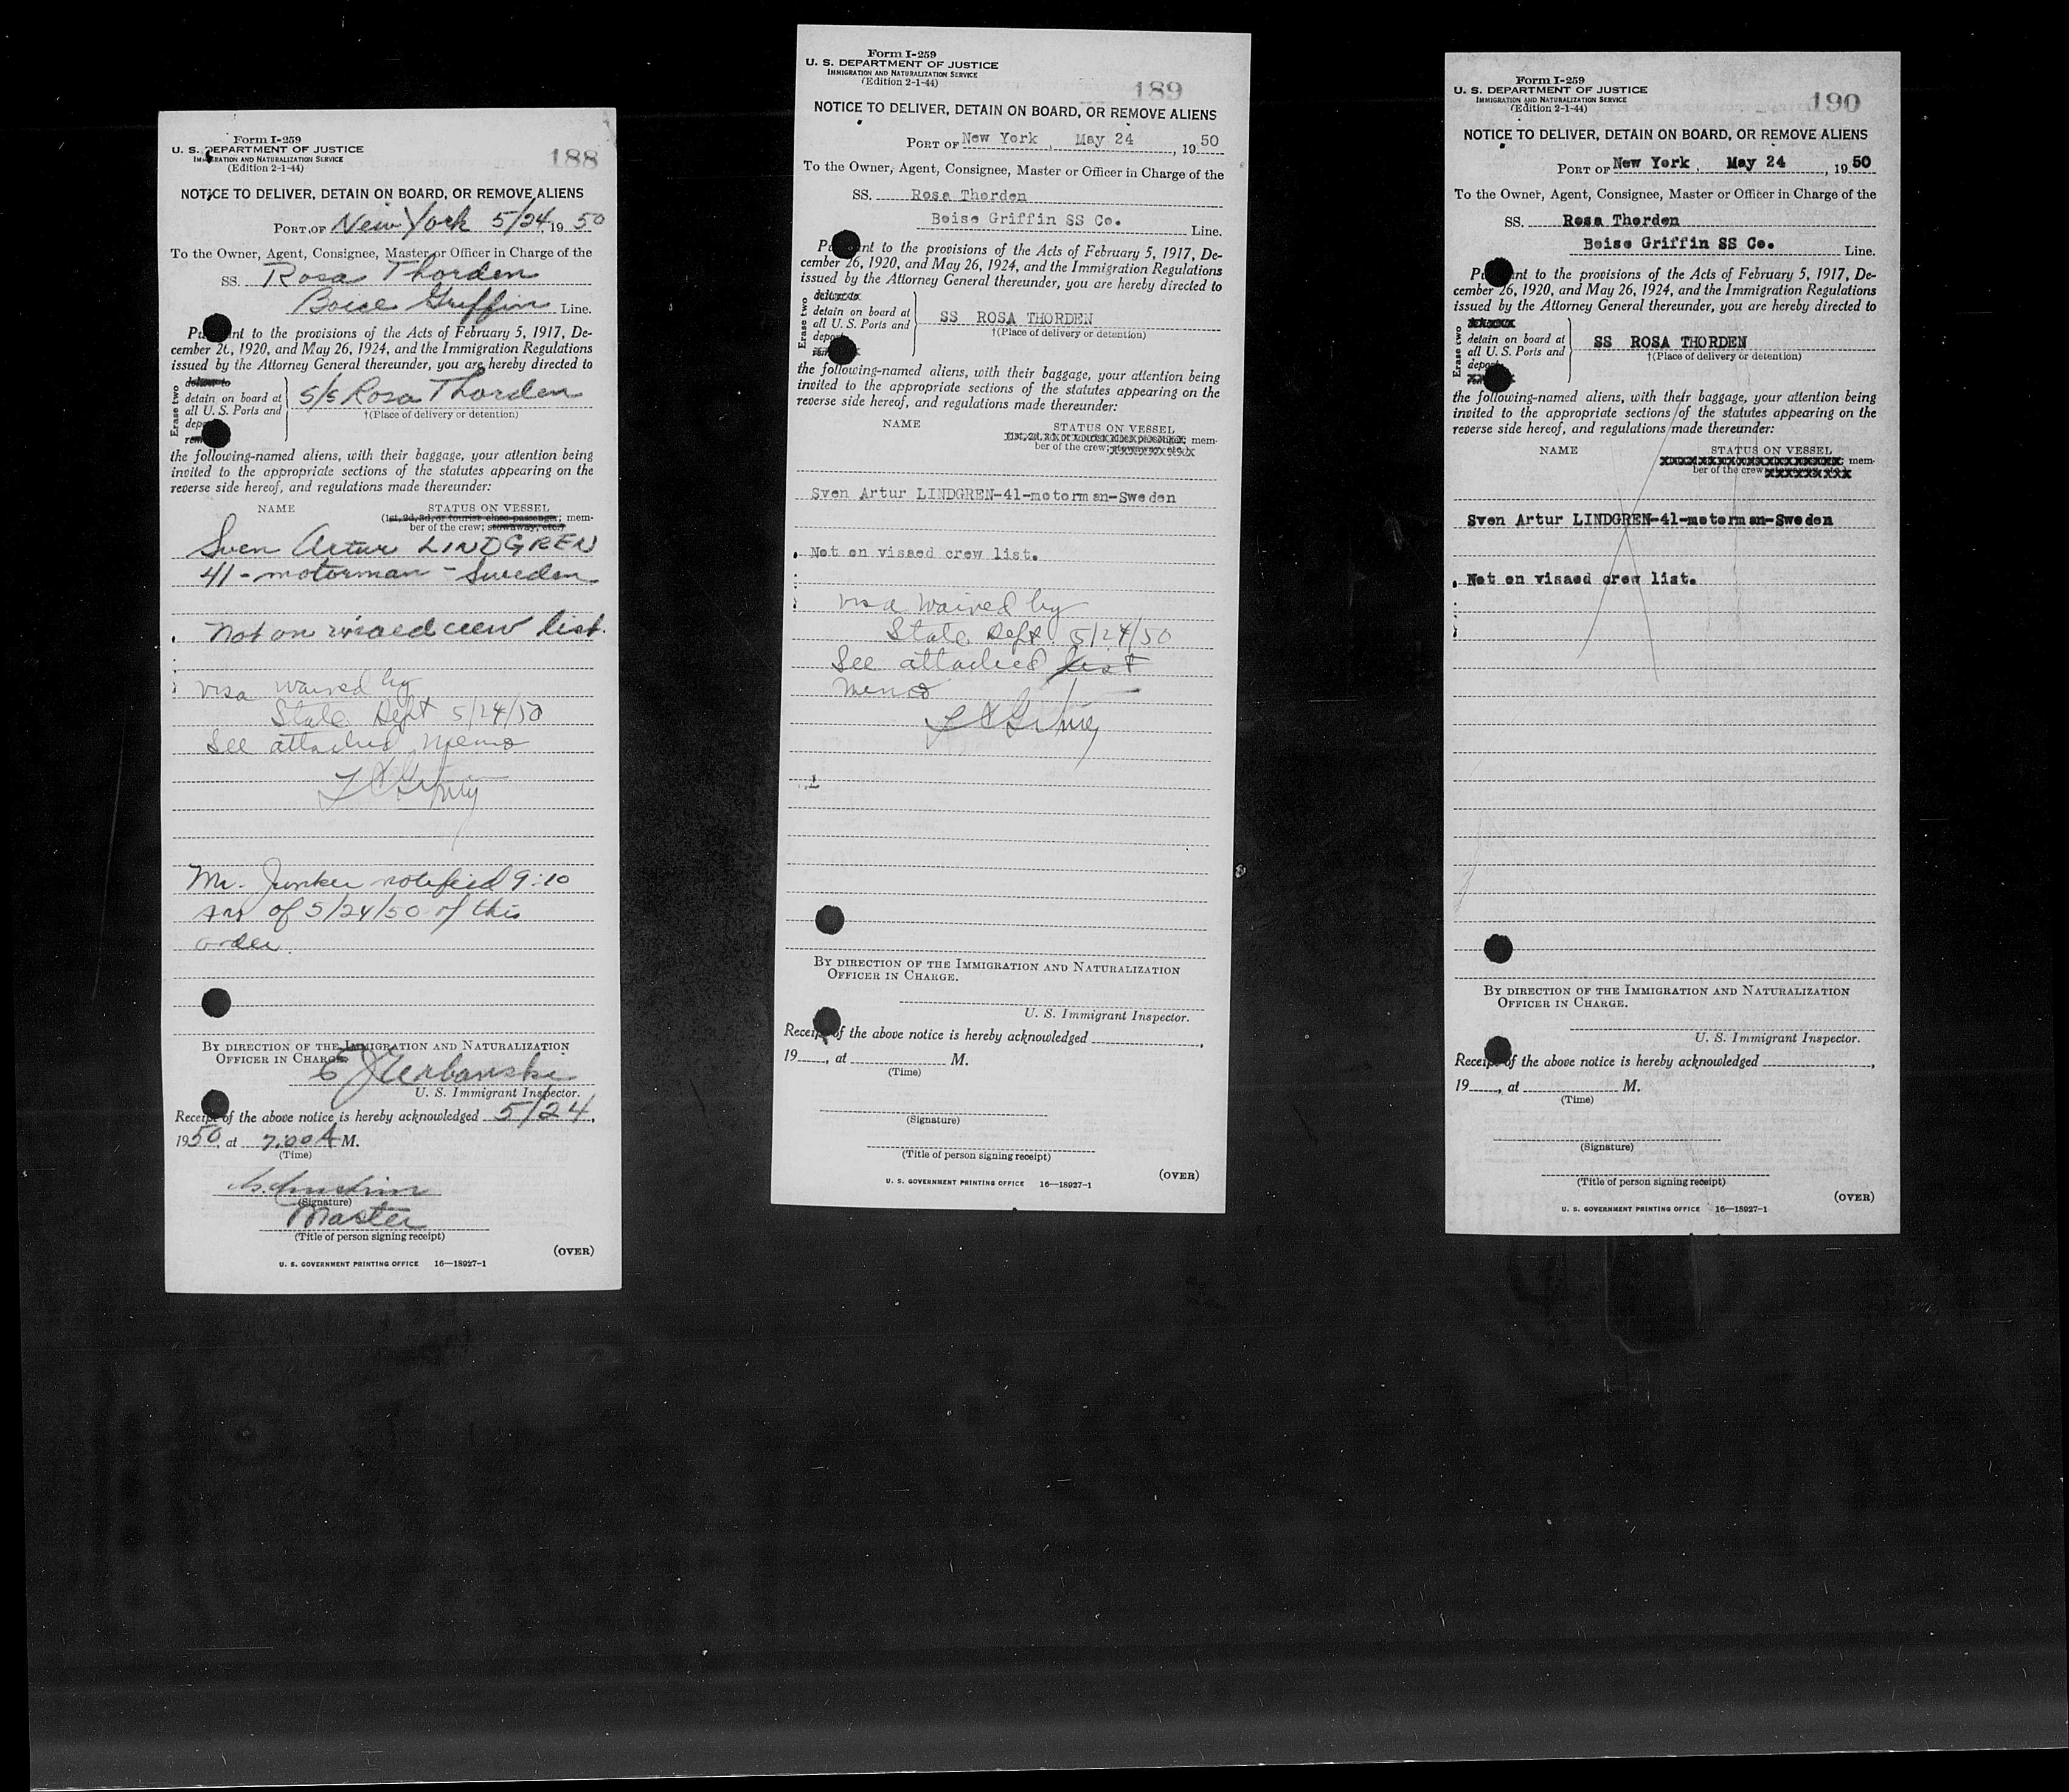 Form I-259
U. S. DEPARTMENT OF JUSTICE
IMMIGRATION AND NATURALIZATION SERVICE
(Edition 2-1-44)
188
NOTICE TO DELIVER, DETAIN ON BOARD, OR REMOVE ALIENS
PORT OF New York 5/24 19 50
To the Owner, Agent, Consignee, Master or Officer in Charge of the
SS. Rosa Thorden
Boice Griffin Line.
Pu nt to the provisions of the Acts of February 5, 1917, De-
cember 26, 1920, and May 26, 1924, and the Immigration Regulations
issued by the Attorney General thereunder, you are hereby directed to
Erase two
deliver to
detain on board at
all U. S. Ports and
depo
rem
S/S Rosa Thorden
†(Place of delivery or detention)
the following-named aliens, with their baggage, your attention being
invited to the appropriate sections of the statutes appearing on the
reverse side hereof, and regulations made thereunder:
NAME STATUS ON VESSEL
(1st, 2d, 3d, or tourist class passenger; mem-
ber of the crew; stowaway, etc.)
Sven Artur LINDGREN
41 - motorman - Sweden
Not on visaed crew list.
visa waived by
State Dept 5/24/50
See attached Memo
Mr. Junker notified 9:10
AM of 5/24/50 of this
order.
BY DIRECTION OF THE IMMIGRATION AND NATURALIZATION
OFFICER IN CHARGE.
E J Urbanski
U. S. Immigrant Inspector.
Receipt of the above notice is hereby acknowledged 5/24,
1950, at 7:00 A M.
(Time)
(Signature)
Master
(Title of person signing receipt)
(OVER)
U. S. GOVERNMENT PRINTING OFFICE 16—18927-1
Form I-259
U. S. DEPARTMENT OF JUSTICE
IMMIGRATION AND NATURALIZATION SERVICE
(Edition 2-1-44)
189
NOTICE TO DELIVER, DETAIN ON BOARD, OR REMOVE ALIENS
PORT OF New York , May 24 , 19 50
To the Owner, Agent, Consignee, Master or Officer in Charge of the
SS. Rosa Thorden
Boise Griffin SS Co. Line.
Pu nt to the provisions of the Acts of February 5, 1917, De-
cember 26, 1920, and May 26, 1924, and the Immigration Regulations
issued by the Attorney General thereunder, you are hereby directed to
Erase two
deliver to
detain on board at
all U. S. Ports and
depo
rem
SS ROSA THORDEN
†(Place of delivery or detention)
the following-named aliens, with their baggage, your attention being
invited to the appropriate sections of the statutes appearing on the
reverse side hereof, and regulations made thereunder:
NAME STATUS ON VESSEL
mem-
ber of the crew;
Sven Artur LINDGREN-41-motorman-Sweden
Not on visaed crew list.
visa waived by
State Dept. 5/24/50
See attached list
memo
BY DIRECTION OF THE IMMIGRATION AND NATURALIZATION
OFFICER IN CHARGE.
U. S. Immigrant Inspector.
Receipt of the above notice is hereby acknowledged ,
19 , at M.
(Time)
(Signature)
(Title of person signing receipt)
(OVER)
U. S. GOVERNMENT PRINTING OFFICE 16—18927-1
Form I-259
U. S. DEPARTMENT OF JUSTICE
IMMIGRATION AND NATURALIZATION SERVICE
(Edition 2-1-44)
190
NOTICE TO DELIVER, DETAIN ON BOARD, OR REMOVE ALIENS
PORT OF New York , May 24 , 19 50
To the Owner, Agent, Consignee, Master or Officer in Charge of the
SS. Rosa Thorden
Boise Griffin SS Co. Line.
Pu nt to the provisions of the Acts of February 5, 1917, De-
cember 26, 1920, and May 26, 1924, and the Immigration Regulations
issued by the Attorney General thereunder, you are hereby directed to
Erase two
xxxxx
detain on board at
all U. S. Ports and
depo
SS ROSA THORDEN
†(Place of delivery or detention)
the following-named aliens, with their baggage, your attention being
invited to the appropriate sections of the statutes appearing on the
reverse side hereof, and regulations made thereunder:
NAME STATUS ON VESSEL
mem-
ber of the crew
Sven Artur LINDGREN-41-motorman-Sweden
Not on visaed crew list.
BY DIRECTION OF THE IMMIGRATION AND NATURALIZATION
OFFICER IN CHARGE.
U. S. Immigrant Inspector.
Receipt of the above notice is hereby acknowledged ,
19 , at M.
(Time)
(Signature)
(Title of person signing receipt)
(OVER)
U. S. GOVERNMENT PRINTING OFFICE 16—18927-1